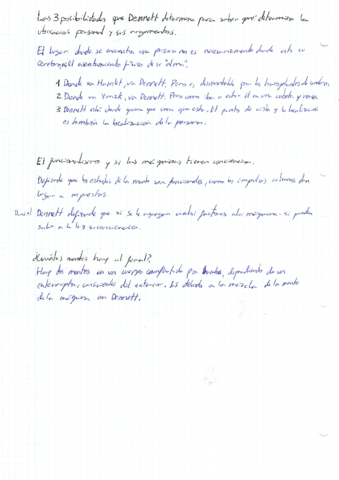 Las 3 posibilidades que Dennett determina para saber que determina la
ubicación personal y sus argumentos.
El lugar donde se encuentra una persona no es necesariamente donde está su
cerebro, es el asentamiento físico de su "alma".
1 Donde va Hamlet, va Dennett. Pero es desmontable por los transplantes de cerebro.
2 Donde va Yorick, va Dennett. Pero como iba a estar él en una cubeta y
3 Dennett está donde quiera que crea que está. El punto de vista y la localización
es también la localización de la persona.
El funcionalismo y si las máquinas tienen conciencia.
Defiende que los estados de la mente son funcionales, como los impulsos
lugar a respuestas.
Daniel Dennett defiende que si se le agregan ciertos factores a la máquina, si podría
saber a la luz su consciencia.
¿Cuántas mentes hay al final?
Hay dos mentes en un cuerpo compartido por dependiendo de un
interruptor, conscientes del exterior. Es debido a la mezcla de la mente
de la máquina con Dennett.